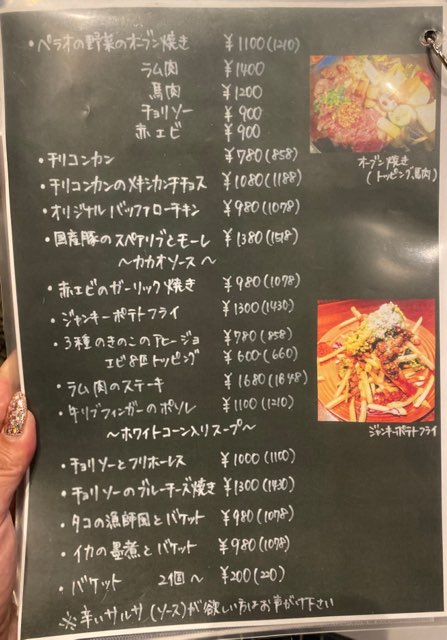 ・ペラオの野菜のオーブン焼き ¥1100(1210)
ラム肉 ¥1400
馬肉 ¥1200
チョリソー ¥900
赤エビ ¥900
・チリコンカン ¥780(858)
・チリコンカンのメキシカンチチョス ¥1080(1188)
・オリジナルバッファローチキン ¥980(1078)
・国産豚のスペアリブとモーレ ¥1380(1518)
〜カカオソース〜
・赤エビのガーリック焼き ¥980(1078)
・ジャンキーポテトフライ ¥1300(1430)
・3種のきのこのアヒージョ ¥780(858)
エビ8匹トッピング ¥600(660)
・ラム肉のステーキ ¥1680(1848)
・牛リブフィンガーのポソレ ¥1100(1210)
〜ホワイトコーン入りスープ〜
・チョリソーとフリホーレス ¥1000(1100)
・チョリソーのブルーチーズ焼き ¥1300(1430)
・タコの漁師風とバケット ¥980(1078)
・イカの墨煮とバケット ¥980(1078)
・バケット 2個〜 ¥200(220)
※辛いサルサ(ソース)が欲しい方はお声がけ下さい
オーブン焼き
(トッピング、馬肉)
ジャンキーポテトフライ